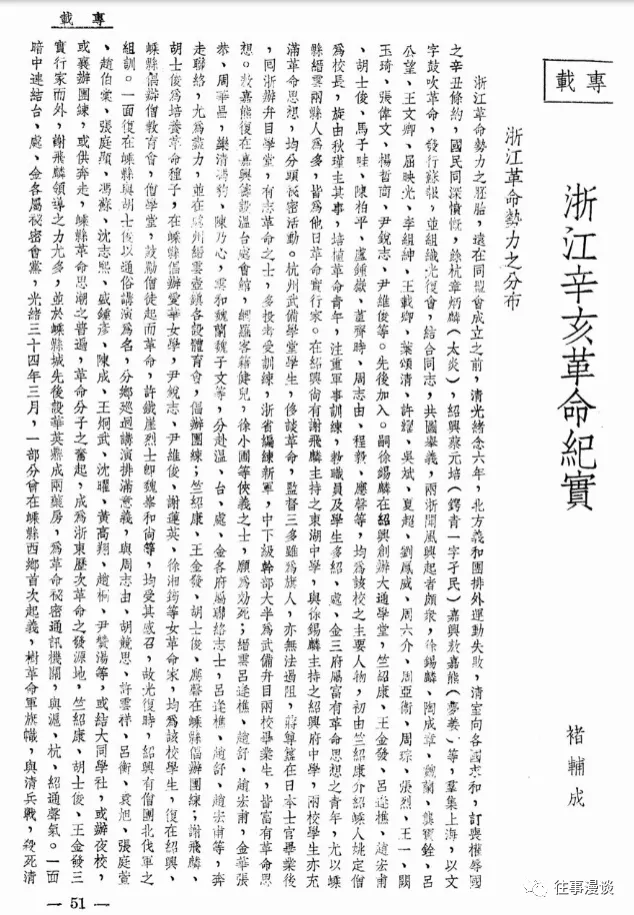 專載
專載
浙江辛亥革命紀實
褚輔成
浙江革命勢力之分布
浙江革命勢力之胚胎，遠在同盟會成立之前，清光緒念六年，北方義和團排外運動失敗，清室向各國求和，訂喪權辱國
之辛丑條約，國民同深憤慨，餘杭章炳麟（太炎），紹興蔡元培（鍔青一字孑民）嘉興敖嘉熊（夢薑）等，羣集上海，以文
字鼓吹革命，發行蘇報，並組織光復會，結合同志，共圖舉義，兩浙聞風興起者頗衆，徐錫麟、陶成章、魏蘭、龔寶銓、呂
公望、王文卿、屈映光、李組紳、王載卿、葉頌清、許耀、吳斌、夏超、劉鳳威、周六介、周亞衞、周琮、張烈、王一、闕
玉琦、張偉文、楊哲商、尹銳志、尹維俊等。先後加入。嗣徐錫麟在紹興創辦大通學堂，竺紹康、王金發、呂逢樵、趙宏甫
、胡士俊、馬子畦、陳柏平、盧鍾嶽、董濟時、周志由、程毅、應磬等，均為該校之主要人物，初由竺紹康介紹嵊人姚定僧
為校長，旋由秋瑾主其事，培植革命青年，注重軍事訓練，教職員及學生多紹、處、金三府屬富有革命思想之青年，尤以嵊
縣縉雲兩縣人為多，皆為他日革命實行家。在紹興尚有謝飛麟主持之東湖中學，與徐錫麟主持之紹興府中學，兩校學生亦充
滿革命思想，均分頭秘密活動。杭州武備學堂學生，侈談革命，監督三多雖為旗人，亦無法遏阻，蔣尊簋在日本士官畢業後
，回浙辦弁目學堂，有志革命之士，多投考受訓練，浙省編練新軍，中下級幹部大半為武備弁目兩校畢業生，皆富有革命思
想。敖嘉熊復在嘉興發設溫台處會館，網羅客籍健兒，徐小圃等俠義之士，願為効死；縉雲呂逢樵、趙舒、趙宏甫，金華張
恭、周華昌，樂清馮豹、陳乃心，雲和魏蘭魏子文等，分赴溫、台、處、金各府屬聯絡志士，呂逢樵、趙舒、趙宏甫等，奔
走聯絡，尤為盡力，並在處州縉雲壺鎮各設體育會，倡辦團練；竺紹康、王金發、胡士俊、應磬在嵊縣倡辦團練；謝飛麟、
胡士俊為培養革命種子，在嵊縣倡辦愛華女學，尹銳志、尹維俊、謝蓮英、徐湘筠等女革命家，均為該校學生，復在紹興、
嵊縣倡辦僧教育會，僧學堂，鼓勵僧徒起而革命，許鐵崖烈士卽魏峯和尚等，均受其感召，故光復時，紹興有僧團北伐軍之
組訓。一面復在嵊縣與胡士俊以通俗講演為名，分鄉巡迴講演排滿意義，與周志由、胡競思、許雲祥、呂衡、袁旭、張庭萱
、趙伯棠、張庭顯、馮蘇、沈志熙、盛鍾彥、陳成、王炯武、沈曜、黃高翔、趙桐、尹贊湯等，或結大同學社，或辦夜校，
或襄辦團練，或供奔走，嵊縣革命思潮之普遍，革命分子之奮起，成為浙東歷次革命之發源地，竺紹康、胡士俊、王金發三
實行家而外，謝飛麟領導之力尤多，並於嵊縣城先後設華英縣成兩藥房，為革命祕密通訊機關，與滬、杭、紹通聲氣。一面
暗中連結台、處、金各屬祕密會黨，光緒三十四年三月，一部分曾在嵊縣西鄉首次起義，樹革命軍旗幟，與清兵戰，殺死清
— 51 —
往事漫谈